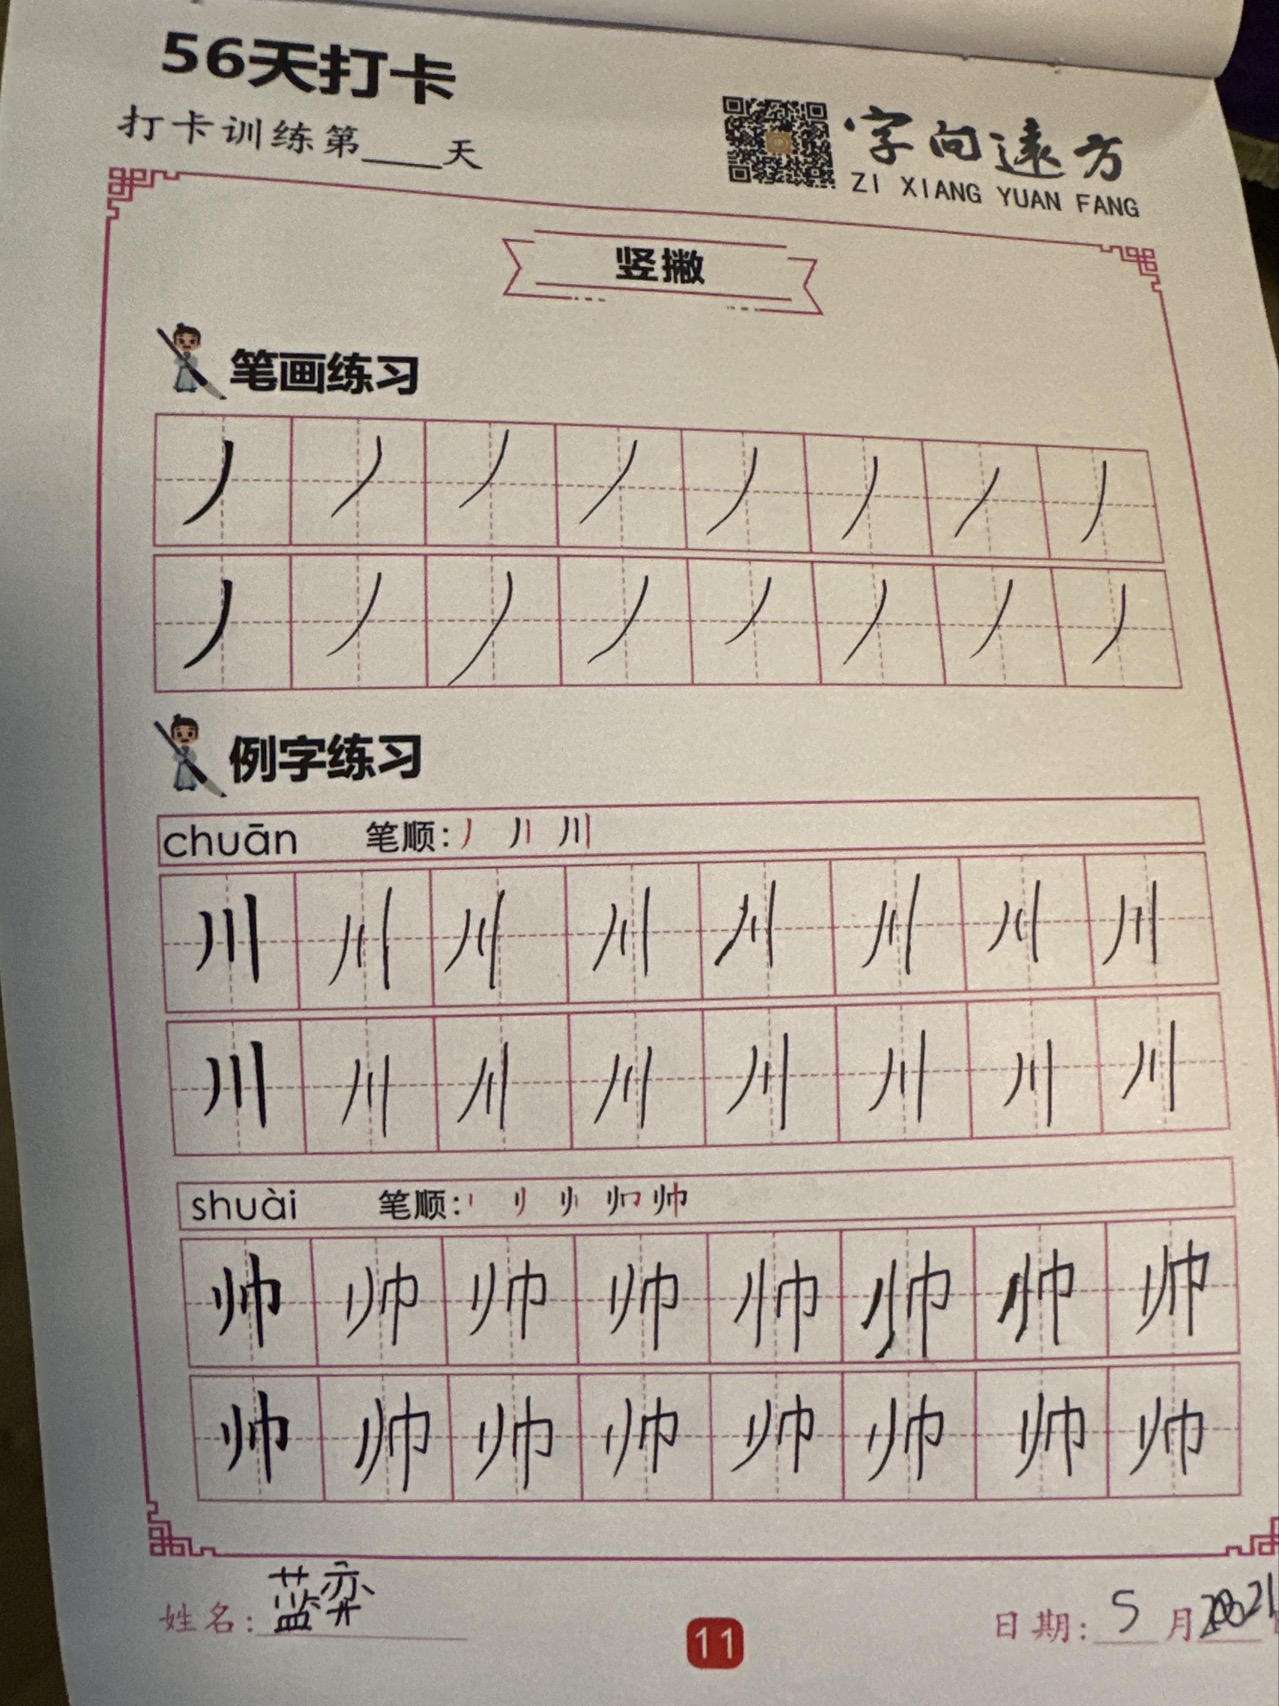 56天打卡
打卡训练第____天
字向远方
ZI XIANG YUAN FANG
竖撇
笔画练习
丿 丿 丿 丿 丿 丿 丿 丿
丿 丿 丿 丿 丿 丿 丿 丿
例字练习
chuān 笔顺: 丿 丿丨 川
川 川 川 川 川 川 川 川
川 川 川 川 川 川 川 川
shuài 笔顺:
帅 帅 帅 帅 帅 帅 帅 帅
帅 帅 帅 帅 帅 帅 帅 帅
姓名: 蓝弈
11
日期: 5 月